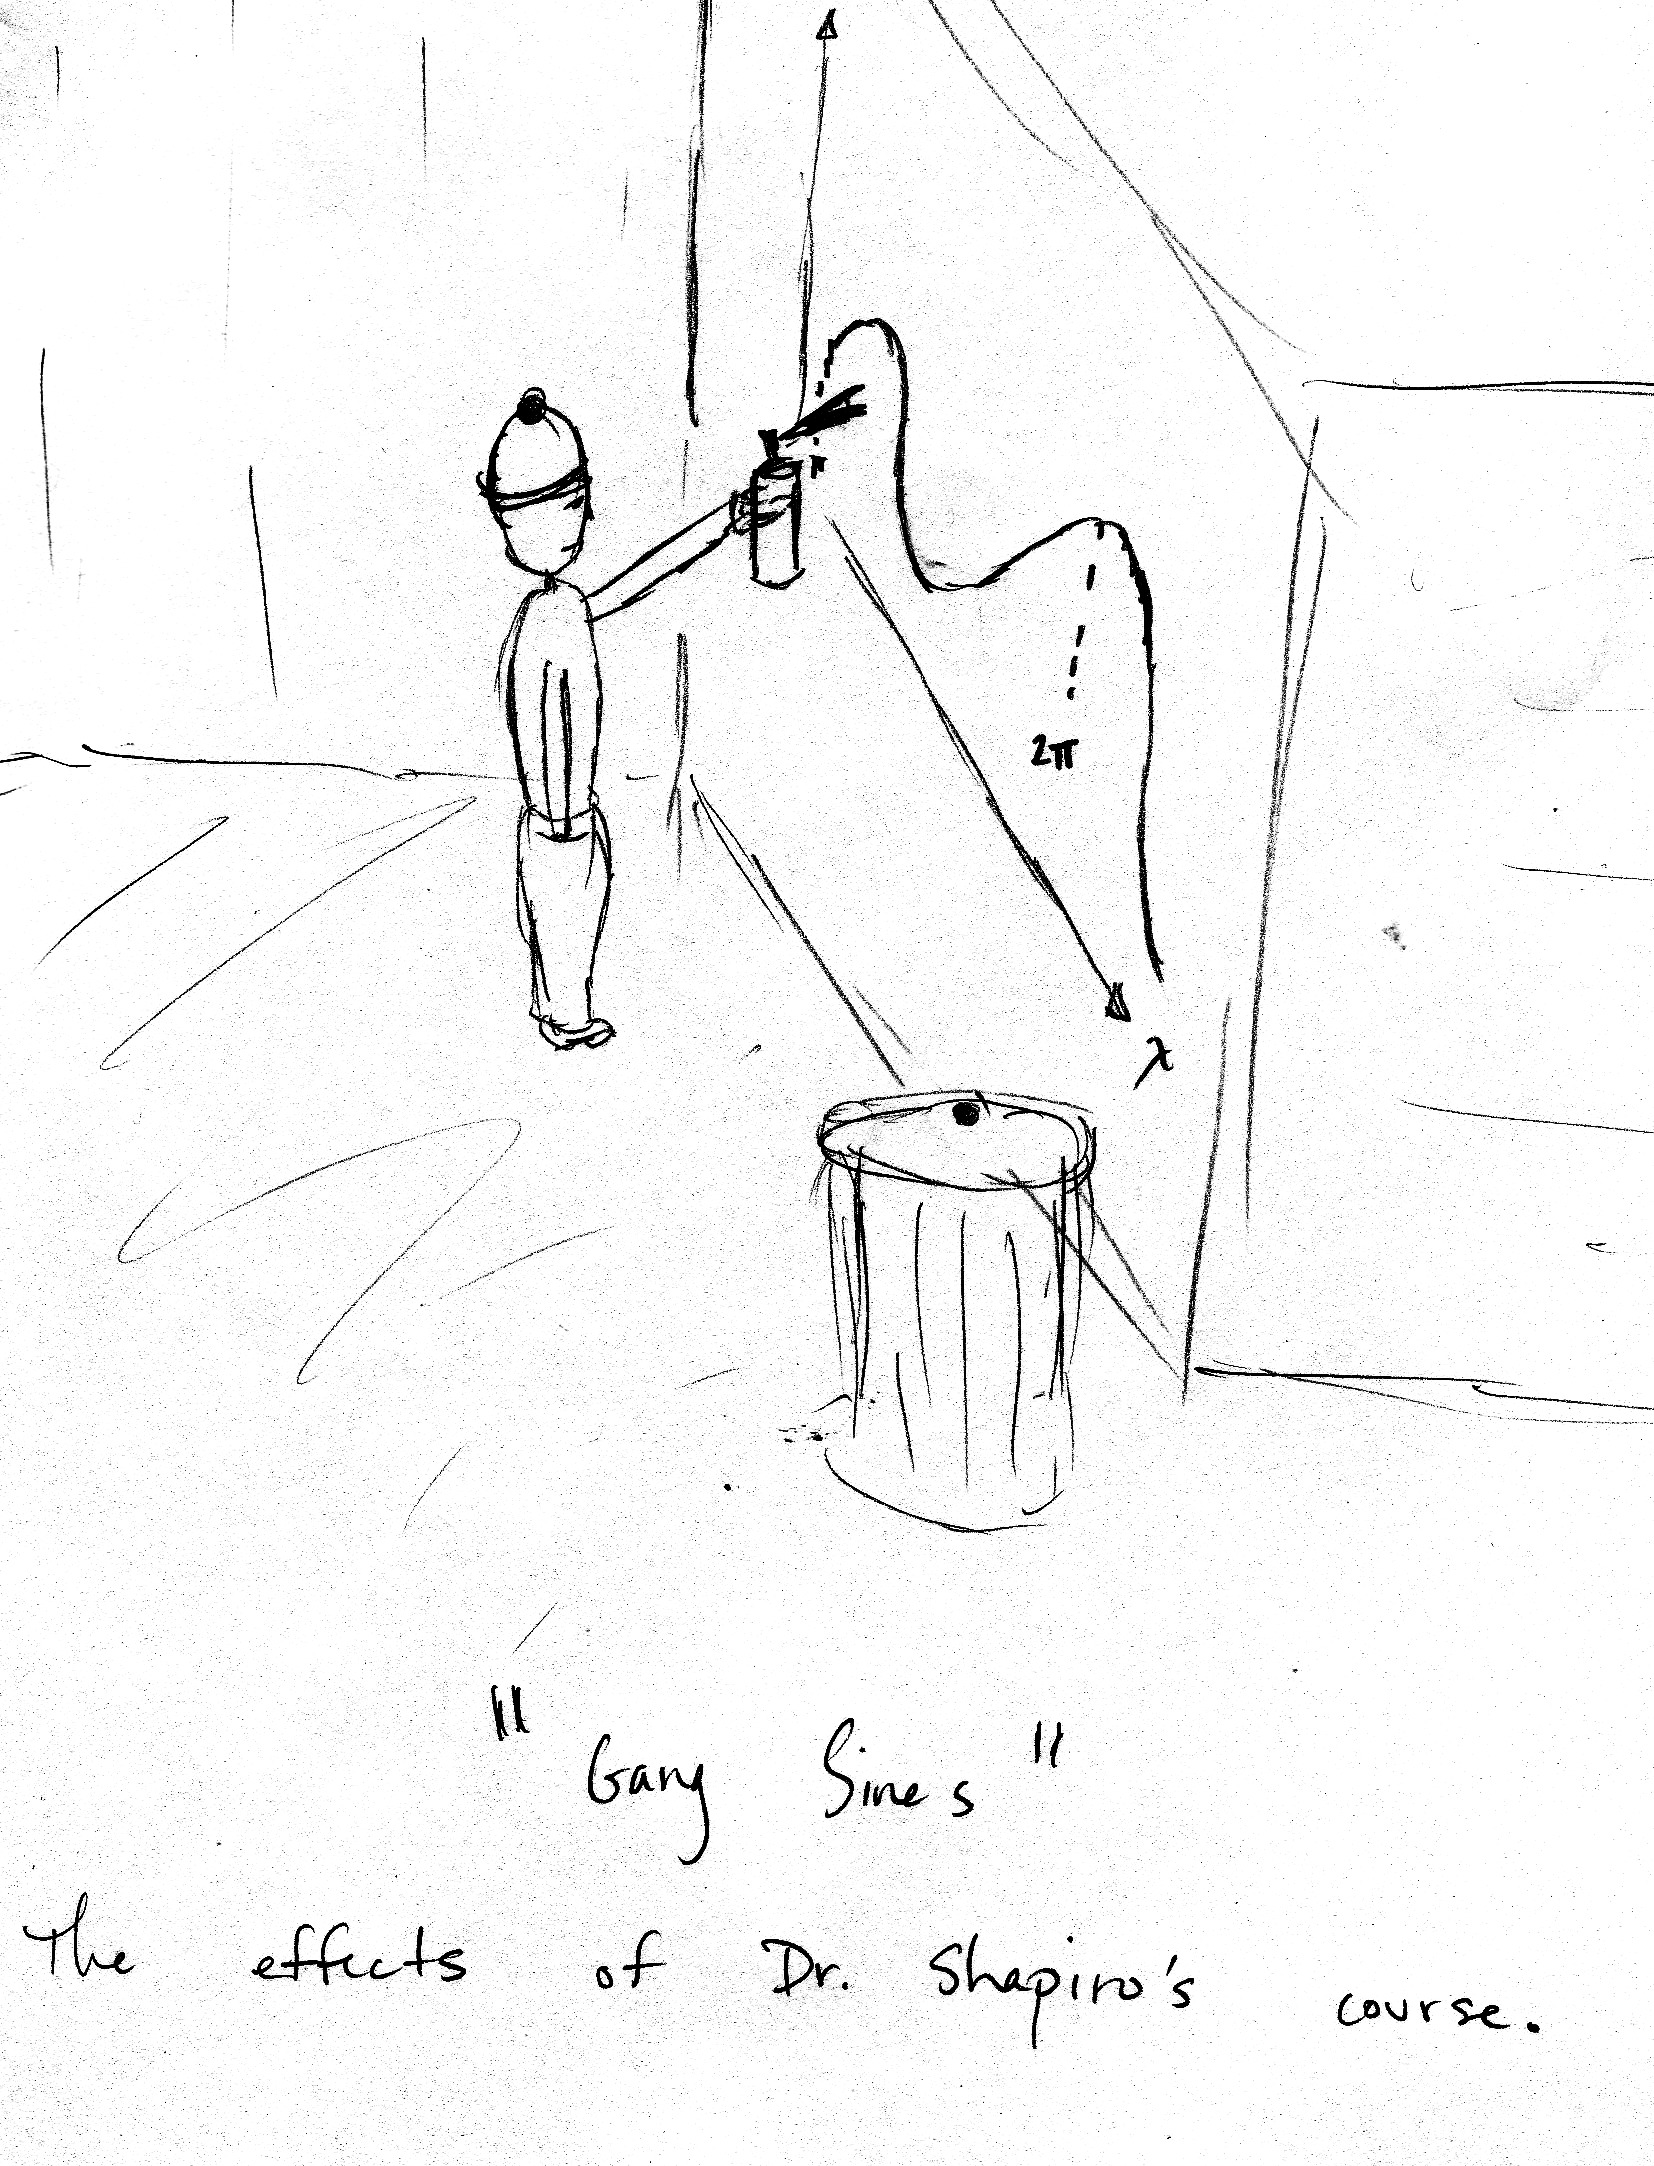 2π
λ
"Gang Sines"
The effects of Dr. Shapiro's course.